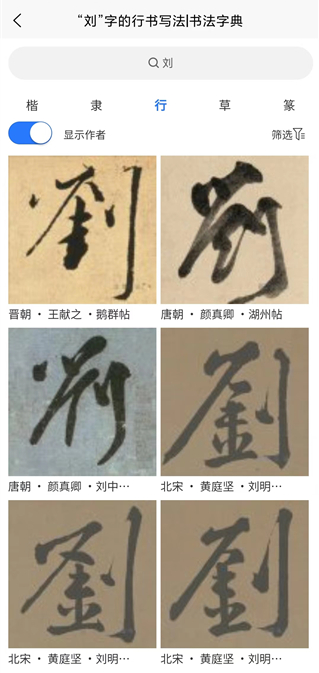 “刘”字的行书写法|书法字典
刘
楷 隶 行 草 篆
显示作者 筛选
劉 劉
晋朝 · 王献之 · 鹅群帖 唐朝 · 颜真卿 · 湖州帖
劉 劉
唐朝 · 颜真卿 · 刘中… 北宋 · 黄庭坚 · 刘明…
劉 劉
北宋 · 黄庭坚 · 刘明… 北宋 · 黄庭坚 · 刘明…